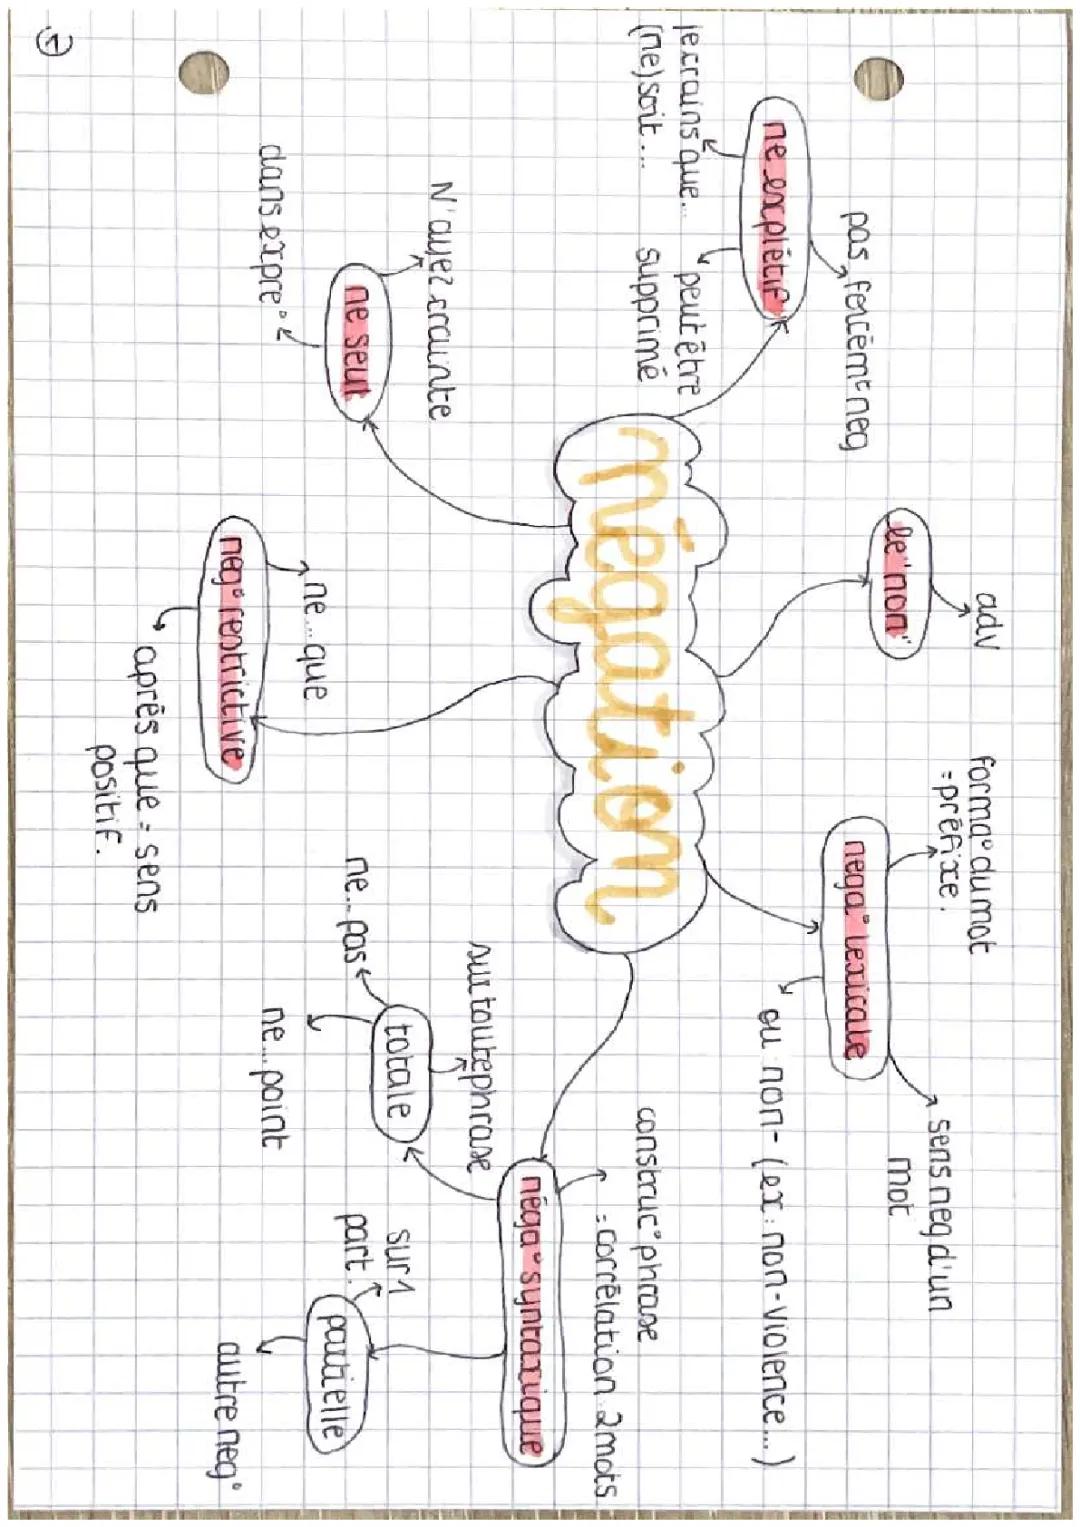 négation
le "non"
adv
ne explétif
pas forcémt neg
je crains que...
(ne) soit...
peut être
supprimé
ne seul
N'ayez crainte
dans expre°
neg° restrictive
ne...que
après que = sens
positif.
nega° lexicale
forma° du mot
= préfixe.
sens neg d'un
mot
ou non- (ex: non-violence...)
néga° syntaxique
construc° phrase
= corrélation 2 mots
totale
sur toute phrase
ne...pas
ne...point
partielle
sur 1
part.
autre neg°